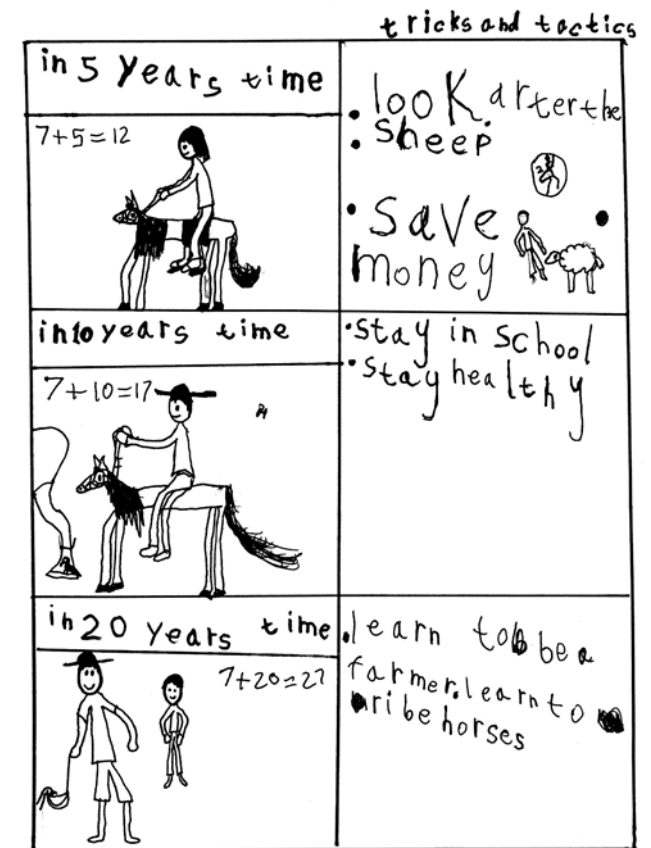 tricks and tactics
in 5 years time
7+5=12
. look arterthe
. sheep.
. save
money
in 10 years time
7+10=17
. stay in school
. stay healthy
in 20 years time
7+20=27
. learn to be a
farmer. learn to
ribe horses